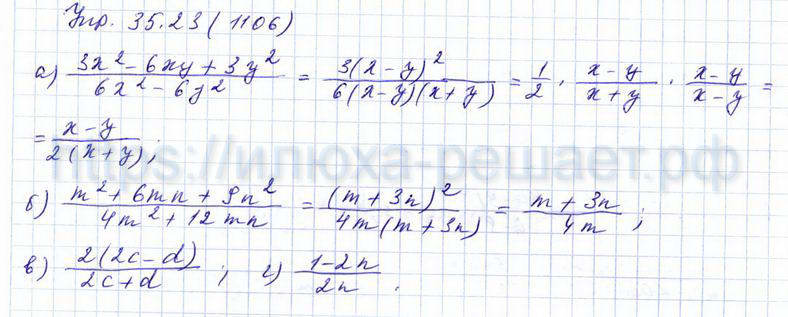 Упр. 35.23 (1106)
а) (3x² - 6xy + 3y²)/(6x² - 6y²) = 3(x - y)²/(6(x - y)(x + y)) = 1/2 · (x - y)/(x + y) · (x - y)/(x - y) =
= (x - y)/(2(x + y));
https://илюха-решает.рф
б) (m² + 6mn + 9n²)/(4m² + 12mn) = (m + 3n)²/(4m(m + 3n)) = (m + 3n)/(4m);
в) 2(2c - d)/(2c + d); г) (1 - 2n)/(2n).